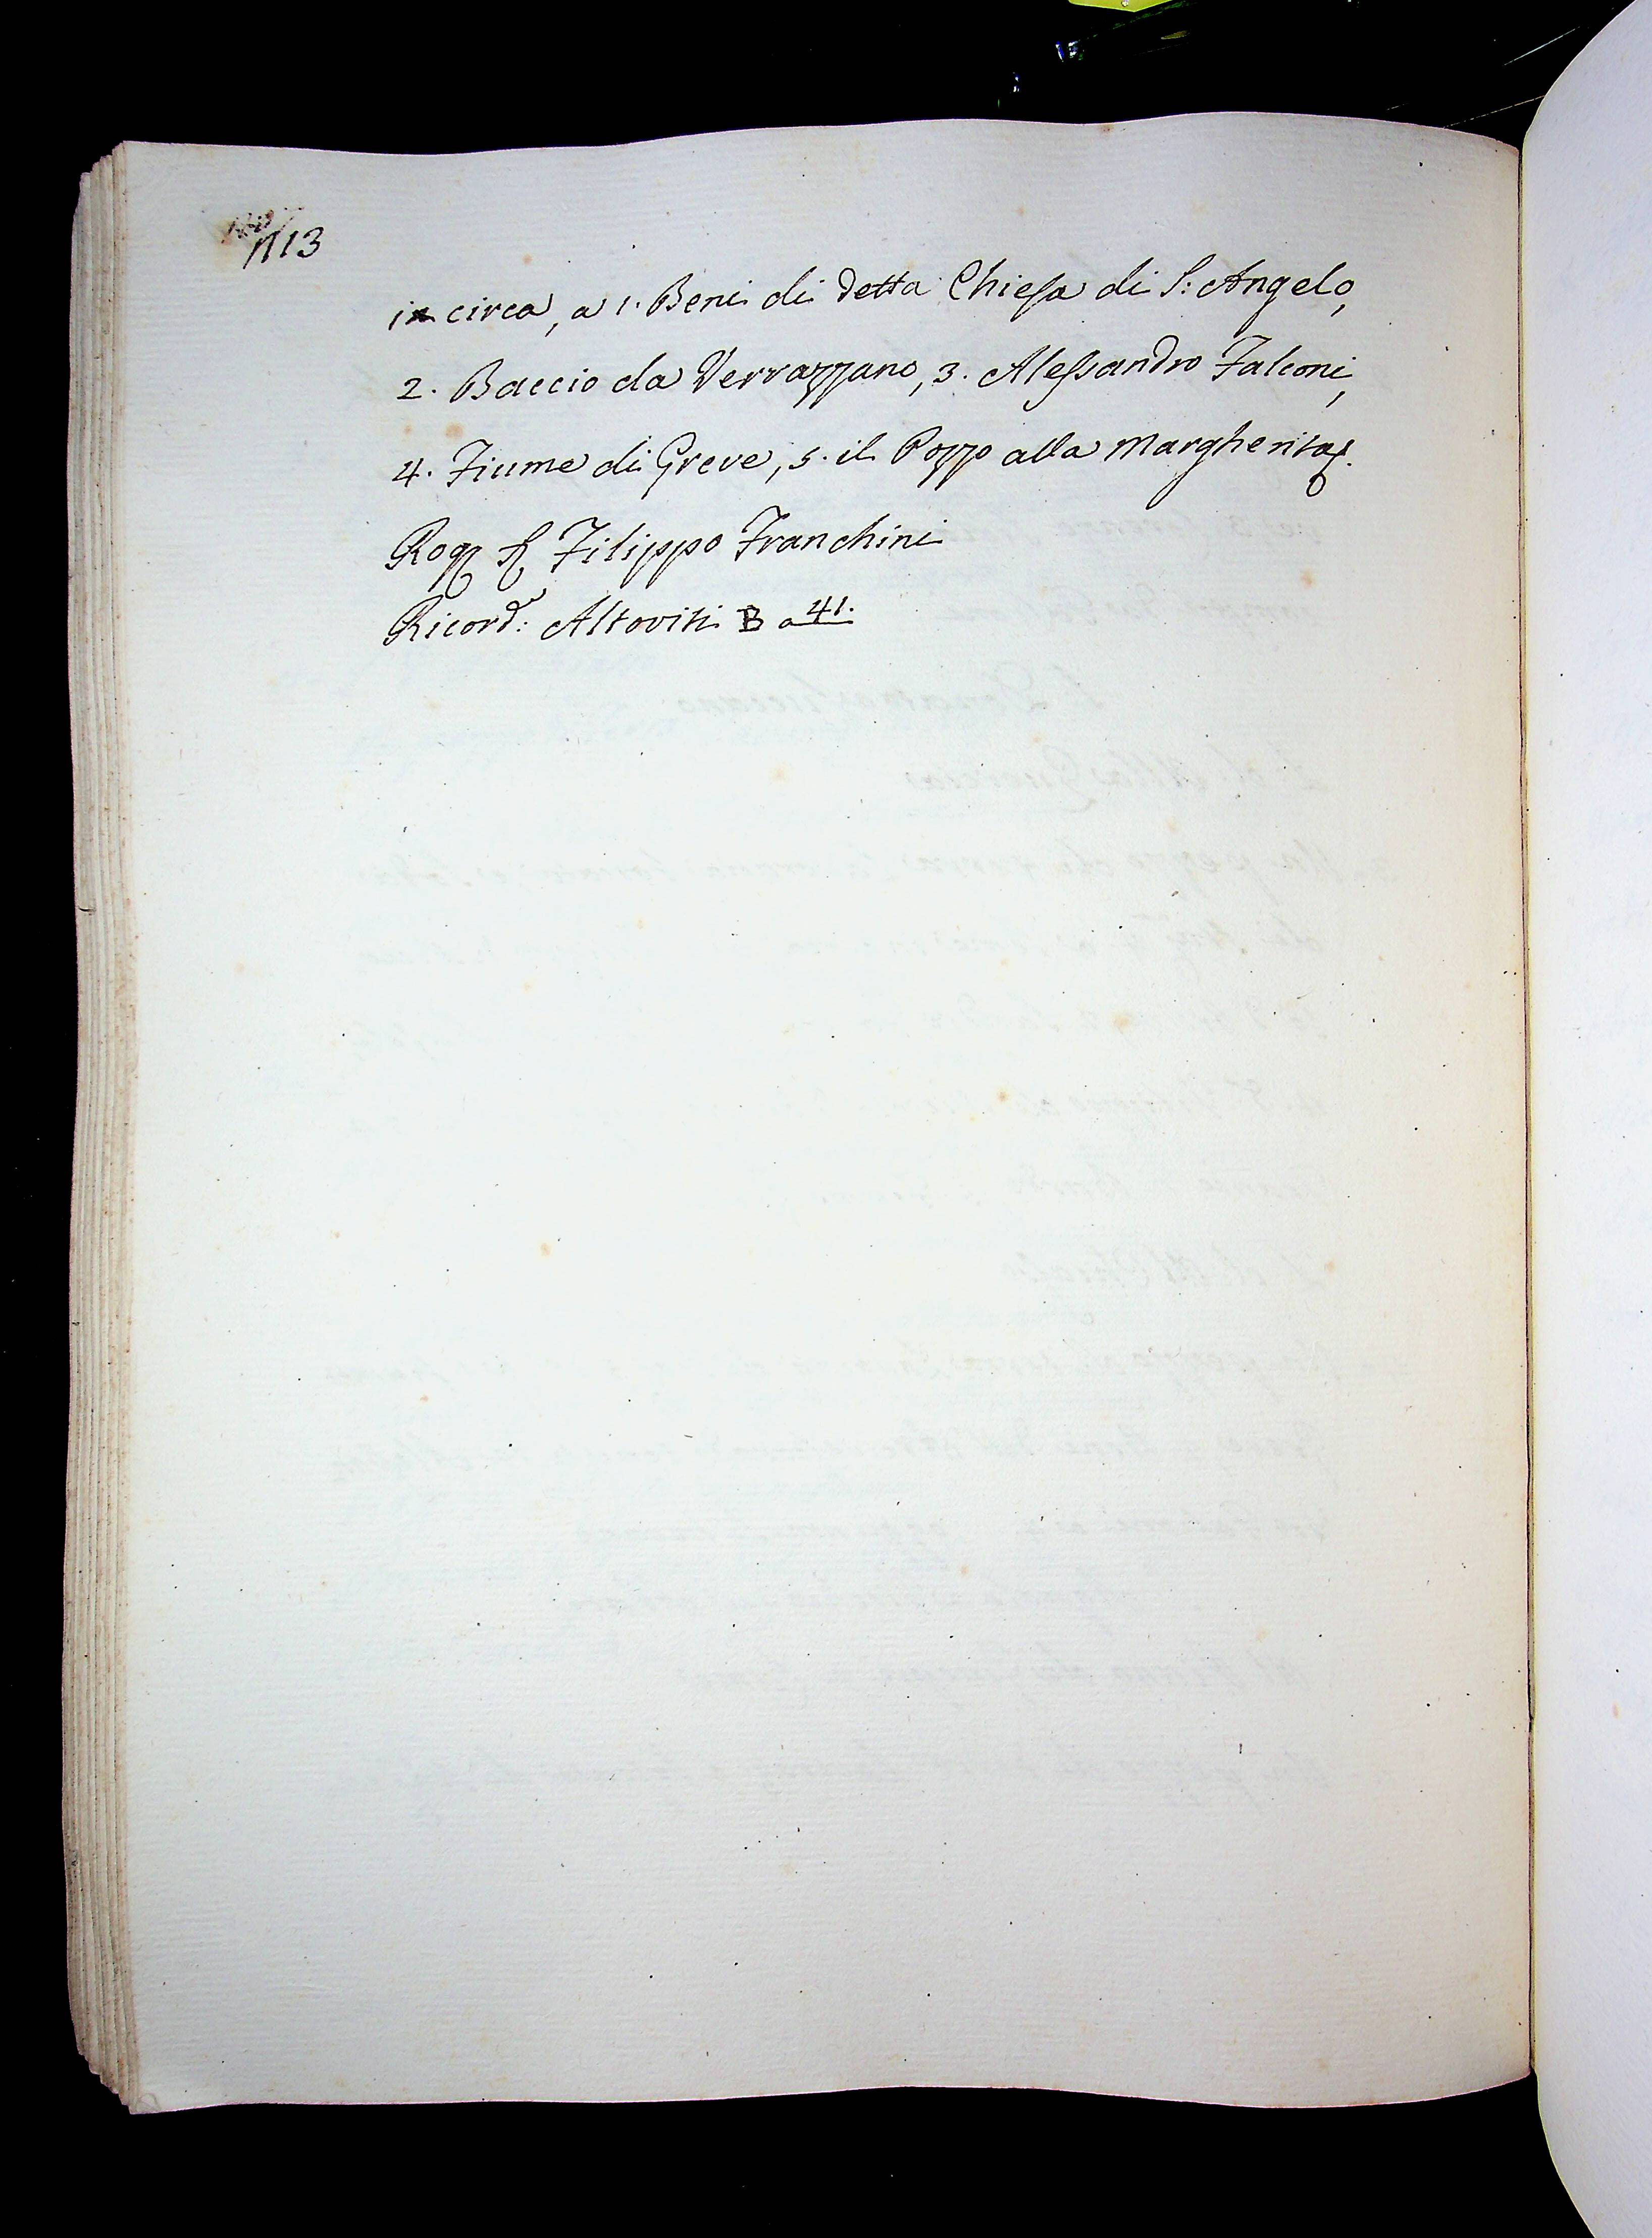 1113
in circa, a 1. Beni di detta Chiesa di S: Angelo,
2. Baccio da Verrazzano, 3. Alessandro Falconi,
4. Fiume di Greve, 5. il Pozzo alla Margherita
Rog Filippo Franchini
Ricord: Altoviti B a 41.